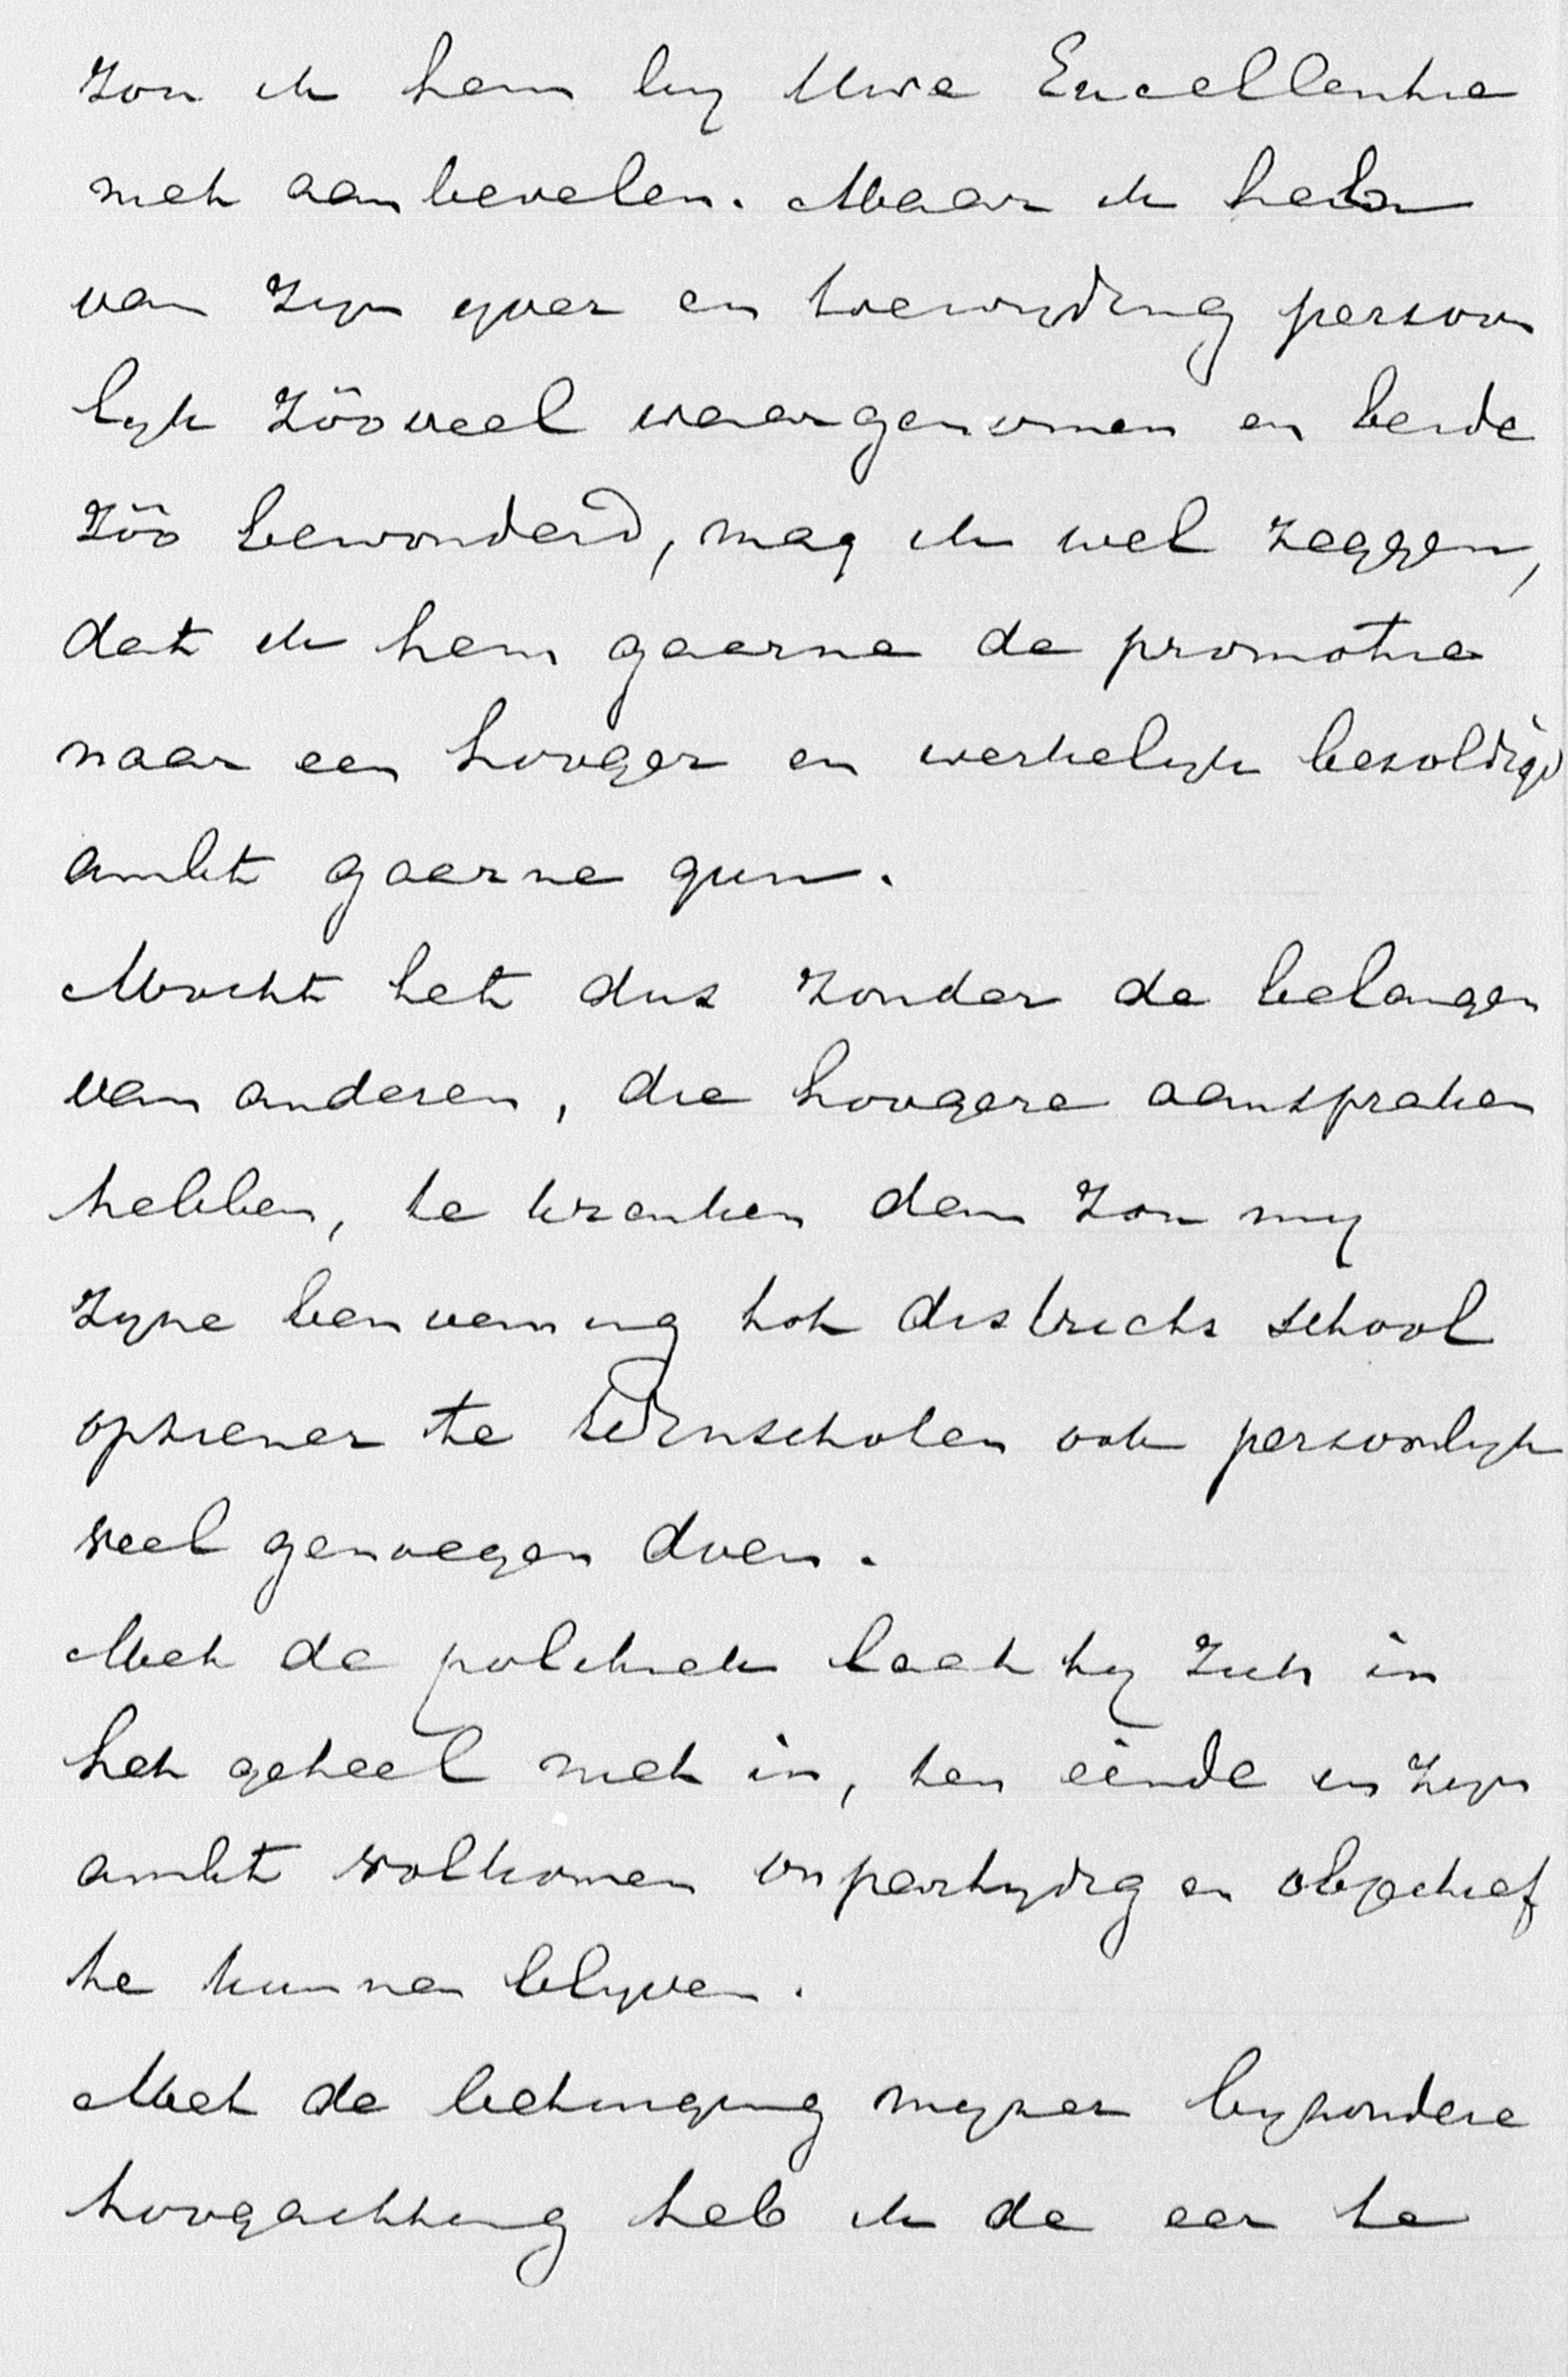 zou ik hem by Uwe Excellentie
niet aanbevelen. Maar ik heb
van zyn yver en toewyding persoon
lyk zóóveel waargenomen en beide
zóó bewonderd, mag ik wel zeggen,
dat ik hem gaerne de promotie
naar een hooger en werkelyk bezoldigd
ambt gaerne gun.
Mocht het dus zonder de belangen
van anderen, die hoogere aanspraken
hebben, te krenken dan zou my
zyne benoeming tot districts school
opziener te Winschoten ook persoonlyk
veel genoegen doen.
Met de politiek laat hy zich in
het geheel niet in, ten einde in zyn
ambt volkomen onpartydig en objectief
te kunnen blyven.
Met de betuiging myner byzondere
hoogachting heb ik de eer te